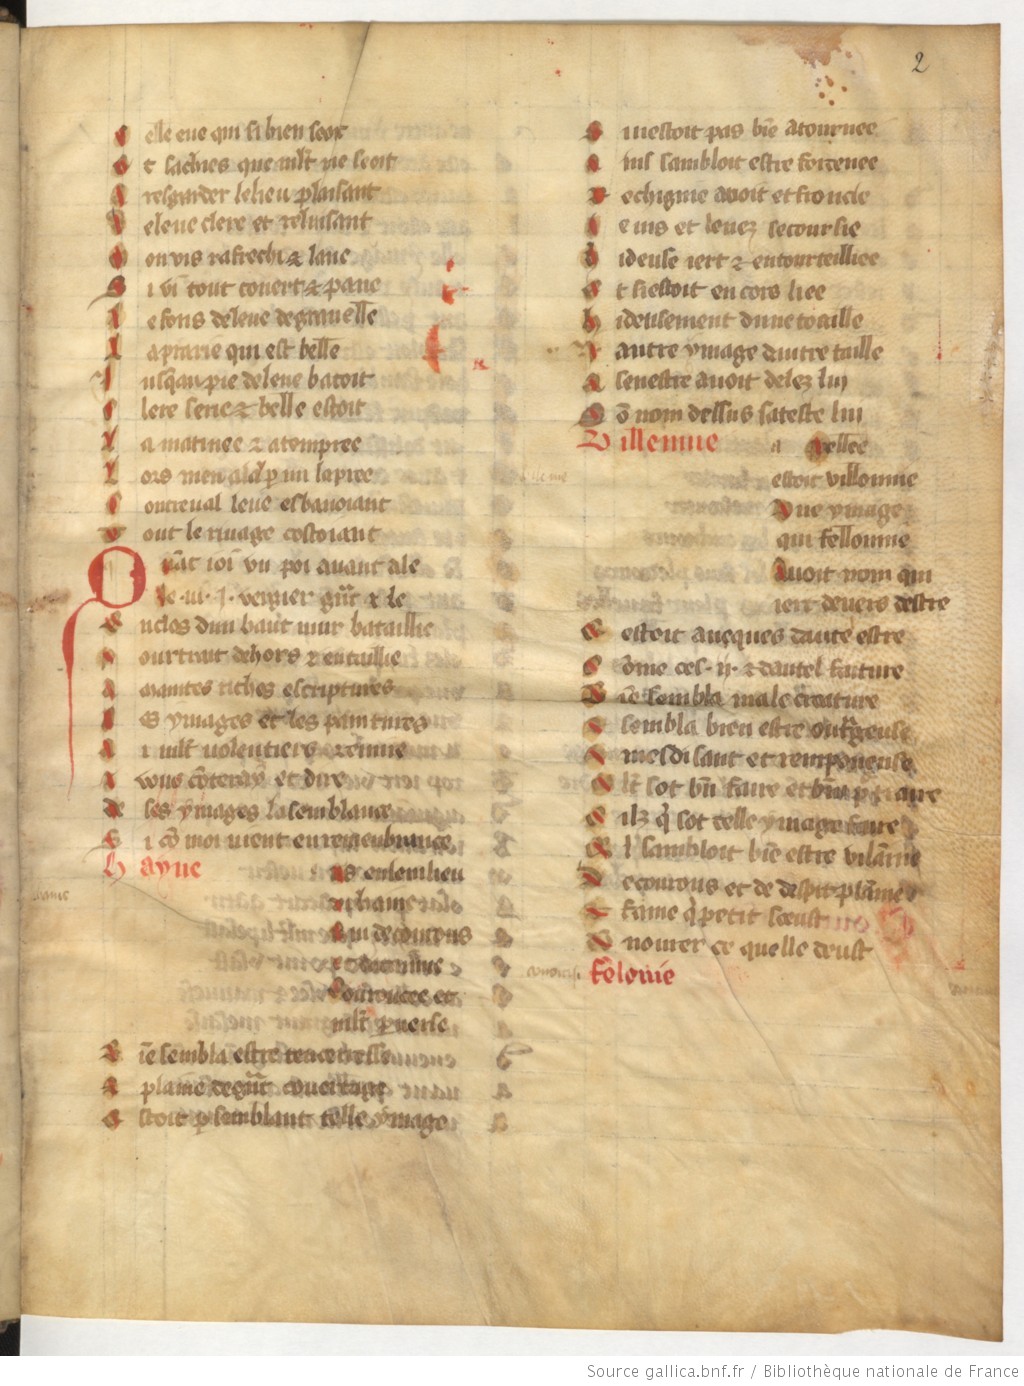 2
Celle eue qui si bien seoit
Et sachies que mlt me seoit
A resgarder le lieu plaisant
De leue clere et reluisant
Mon vis rafrechi & laue
Si vi tout couert & paue
Le fons de leue de grauelle
La praerie qui est belle
Jusqau pie de leue batoit
Clere serie & belle estoit
La matinee & atempree
Lors men alai p mi la pree
Contreual leue esbanoiant
Tout le riuage costoiant
Quāt ioi vn poi auant ale
Si vergier grāt & le
Enclos dun haut mur bataillie
Pourtrait dehors & entaillie
A maintes riches escriptures
Les ymages et les paintures
Ai mlt uolentiers remire
Si vous cōteray et dire
De ses ymages la semblance
Si cō moi uient en remenbrance
Hayne
Ens en lemlieu
vi hayne
Qui de courous
Couroucee et
mlt peruerse
Biē sembla estre tenceresse
Et plaine de grāt
Estoit p semblant celle ymage
Si nestoit pas biē atournee
Ains sambloit estre forcenee
Rechignie auoit et froncie
Le uis et le nez secourcie
Hideuse iert & entourteilliee
Et si estoit encors liee
Hideusement dune toaille
Vne autre ymage dautre taille
A senestre auoit delez luy
Son nom dessus sa teste lui
Villennie
Appellee
estoit villonnie
Vne ymage
qui fellonnie
Auoit nom qui
iert deuers destre
Estoit auecques dautre estre
Cōme ces .ij. & dautel faiture
Biē sembla male creature
Sembla bien estre outrgeuse
Et mesdisant et remponeuse
Mlt sot bn faire et bien p traire
Cilz q sot telle ymage faire
El sambloit biē estre vilaīne
De courous et de despit plaīne
Et fame q petit sceust
Dnourer ce quelle deust
felonie
Source gallica.bnf.fr / Bibliothèque nationale de France